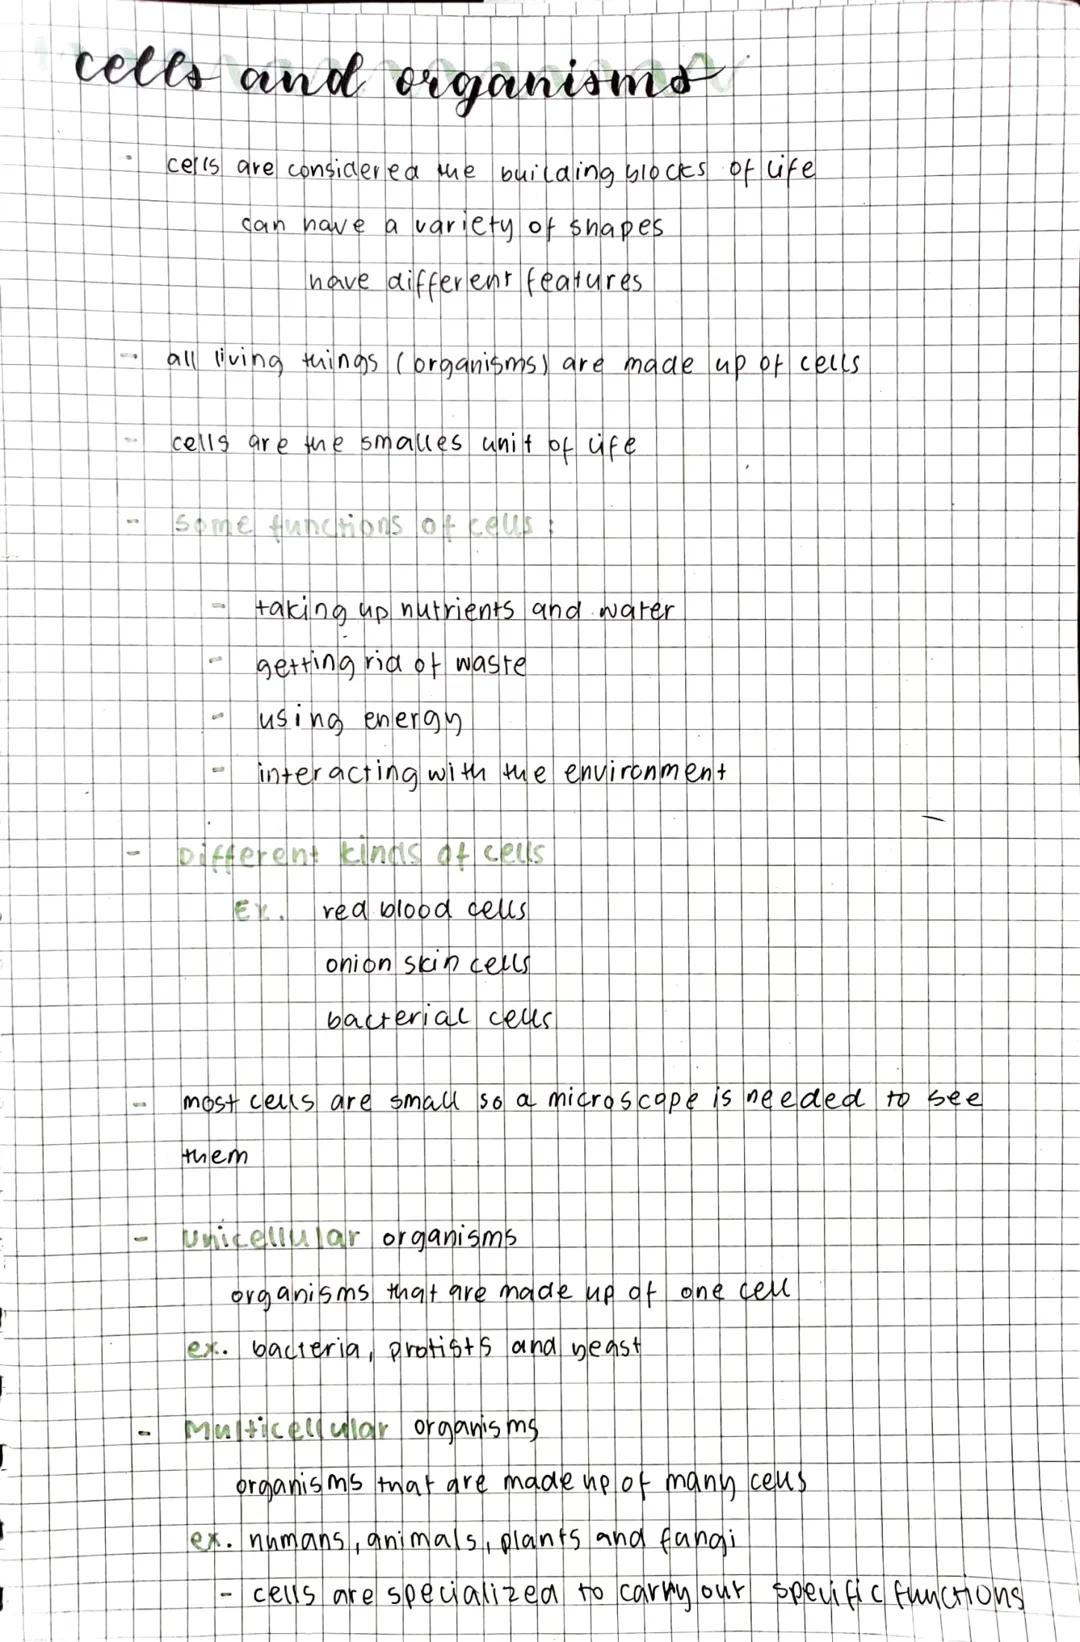 cells and organisms
- cells are considered the building blocks of life
can have a variety of shapes
have different features
- all living things (organisms) are made up of cells
- cells are the smalles unit of life
- some functions of cells :
- taking up nutrients and water
- getting rid of waste
- using energy
- interacting with the environment
- Different kinds of cells
Ex. red blood cells
onion skin cells
bacterial cells
- most cells are small so a microscope is needed to see
them
- unicellular organisms
organisms that are made up of one cell
ex. bacteria, protists and yeast
- Multicellular organisms
organisms that are made up of many cells
ex. humans, animals, plants and fungi
- cells are specialized to carry out specific functions